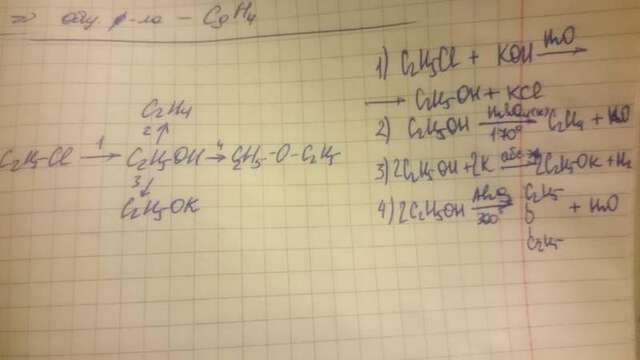 ⇒ общ. ф-ла – CgH4
C2H5Cl →1 C2H5OH →4 C2H5-O-C2H5
2↑
C2H4
3↓
C2H5OK
1) C2H5Cl + KOH H2O→
→ C2H5OH + KCl
2) C2H5OH H2SO4(к)→ 170° C2H4 + H2O
3) 2C2H5OH + 2K → 2C2H5OK + H2
4) 2C2H5OH Al2O3→ 300° C2H5-O-C2H5 + H2O